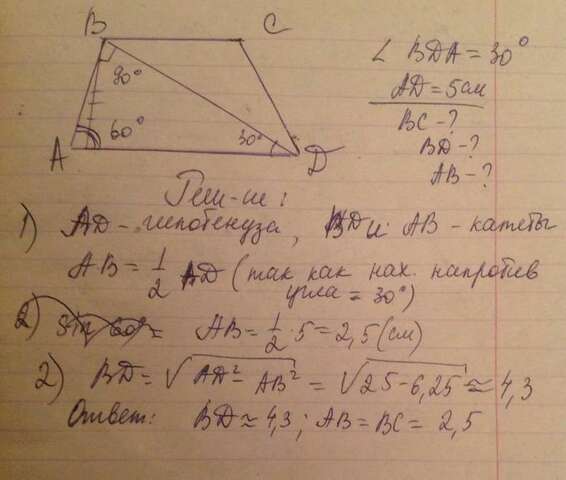 B C
90°
60°
30°
A D
∠ BDA = 30°
AD = 5 см
BC - ?
BD - ?
AB - ?
Реш-ие:
1) AD - гипотенуза, BD и AB - катеты
AB = 1/2 AD (так как нах. напротив
угла = 30°)
2) sin 60° =
AB = 1/2 · 5 = 2,5 (см)
2) BD = √AD² - AB² = √25 - 6,25 ≈ 4,3
Ответ: BD ≈ 4,3; AB = BC = 2,5